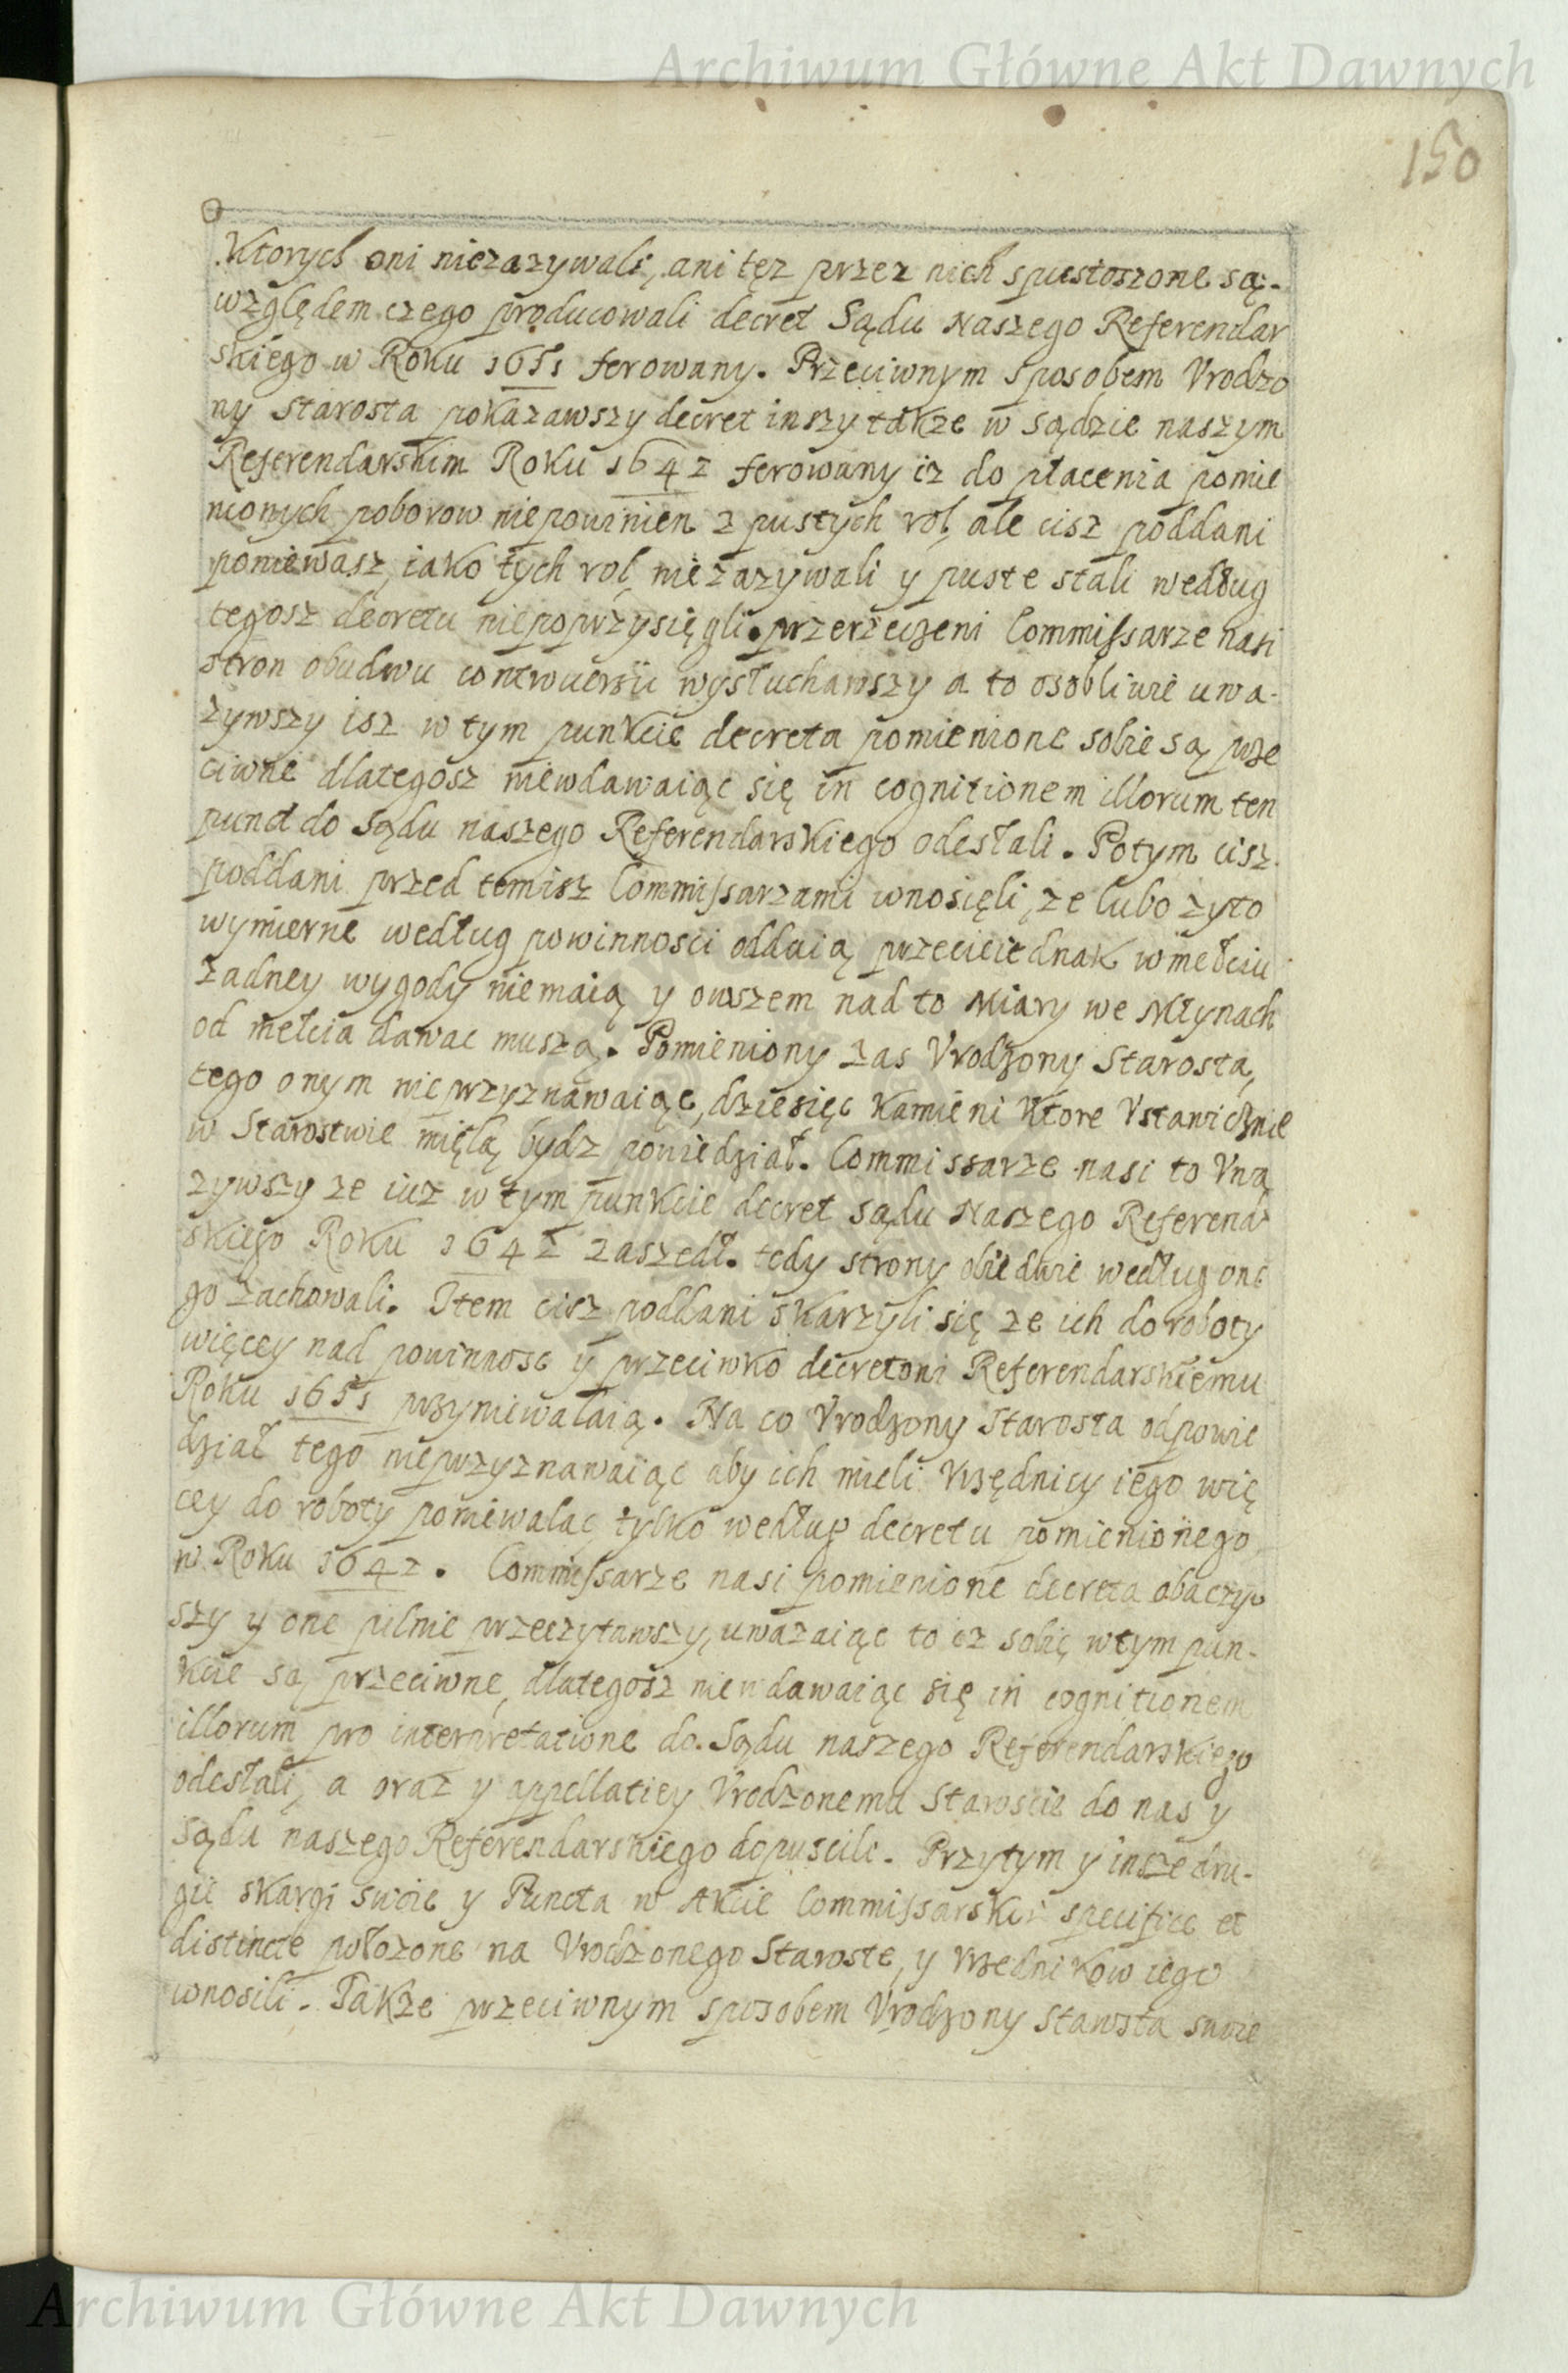 Archiwum Główne Akt Dawnych
150
Ktorych oni niezazywali, ani tęz przez nich spustoszone są.
względem czego producowali decret Sądu Naszego Referendar
skiego w Roku 1651 ferowany. Przeciwnym sposobem Vrodzo
ny starosta pokazawszy decret inszy takze w sądzie naszym
Referendarskim Roku 1642 ferowany iz do płacenia pomie
nionych poborow niepowinien z pustych rol, ale cisz poddani
poniewasz, iako tych rol, niezazywali y puste stali według
tegosz decretu niepoprzysięgli. przerzeczeni Commissarze nasi
stron obudwu controuersii wysłuchawszy a to osobliwie uwa-
zywszy isz w tym punkcie decreta pomienione sobie są prze
ciwne dlategosz niewdawaiąc się in cognitionem illorum ten
punct do Sądu naszego Referendarskiego odesłali. Potym cisz
poddani przed temisz Commissarzami wnosięli, ze lubo zyto
wymierne według powinnosci oddaią przecieiednak w mełciu
zadney wygody niemaią y owszem nad to Miary we Młynach
od mełcia dawac muszą. Pomieniony zas Vrodzony Starosta,
tego onym nieprzyznawaiąc, dziesięc kamieni ktore Vstawicznie
w Starostwie mięlą bydz powiedział. Commissarze nasi to Vwa
zywszy ze iuz w tym punkcie decret sądu Naszego Referendar
skiego Roku 1642 zaszedł. tedy strony obiedwie według one
go zachowali. Item cisz poddani skarzyli się ze ich do roboty
więcey nad powinnosc y przeciwko decretowi Referendarskiemu
Roku 1651 przyniewalaią. Na co Vrodzony Starosta odpowie
dział tego nieprzyznawaiąc aby ich mieli Vrzędnicy iego wię
cey do roboty poniewalac, tylko według decretu pomienionego
w Roku 1642. Commissarze nasi pomienione decreta obaczyw
szy y one pilnie przeczytawszy, uwazaiąc to iz sobię w tym pun-
kcie są przeciwne, dlategosz niewdawaiąc się in cognitionem
illorum pro interpretatione do Sądu naszego Referendarskiego
odesłali, a oraz y appellatiey Vrodzonemu Staroscie do nas y
Sądu naszego Referendarskiego dopuscili. Przytym y insze dru-
gie skargi swoie y Puncta w Akcie Commissarskim specifice et
distincte położone na Vrodzonego Staroste, y Vrzednikow iego
wnosili. Takze przeciwnym sposobem Vrodzony Starosta swoie
Archiwum Główne Akt Dawnych